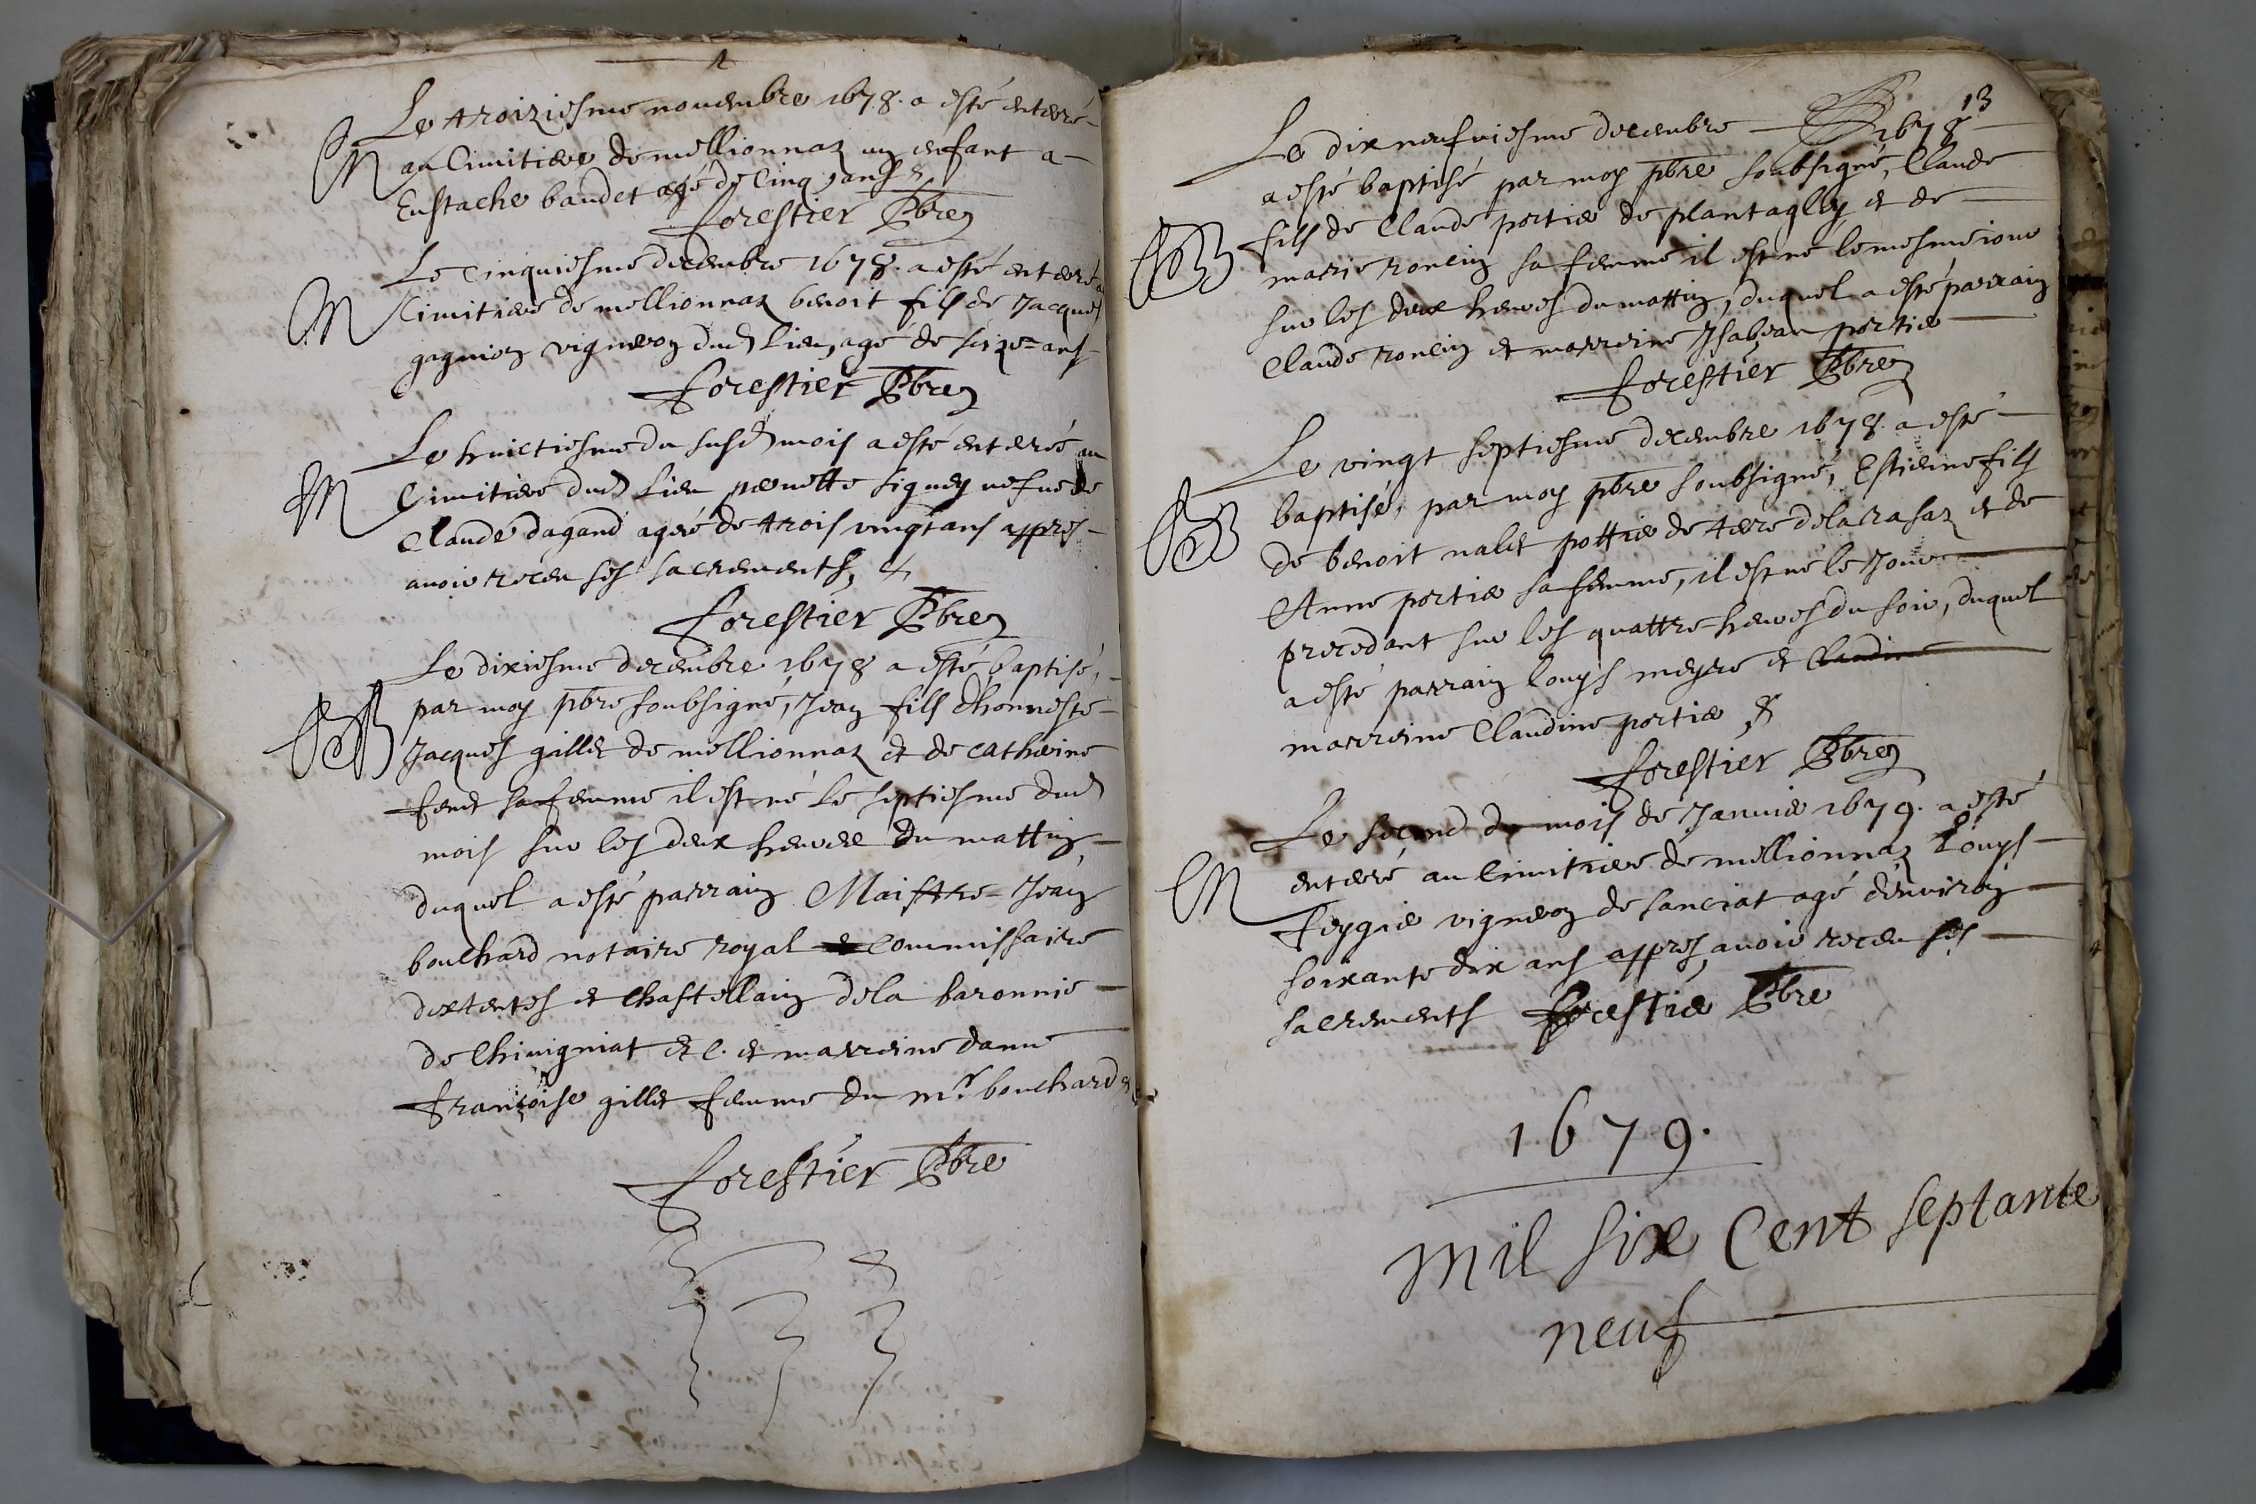 Le troiziesme novembre 1678. a esté enterré
M
au Cimitiere de mellionnaz un enfant a
Eustache baudet agé de Cinq ans
forestier Pbre
Le Cinquiesme decembre 1678. a esté enterré
M
Cimitiere de mellionnaz benoit fils de Jacques
gagnion vigneron dud lieu, agé de seize ans
forestier Pbre
Le huictiesme du susd mois a esté enterré au
M
Cimitiere dud lieu pernette vefve de
Claude dagand agée de trois vingt ans appres
avoir receu ses sacrements
forestier Pbre
Le dixiesme decembre 1678 a esté baptisé,
B
par moy pbre soubsigné, Jean fils dhonneste
Jacques gillet de mellionnaz et de catherine
sa femme il est né le septiesme dud
mois sur les deux heures du mattin,
duquel a esté parrain Maistre Jean
bouchard notaire royal et Commissaire
dextentes et Chastellain dela baronnie
de Chivigniat etc. et marreine dame
françoise gillet femme du mr. bouchard
forestier Pbre
13
Le dix neufviesme decembre 1678
a esté baptisé par moy pbre soubsigné, Claude
B
fils de Claude portier de plantaglay et de
marie roncin sa femme il est né le mesme iour
sur les deux heures du mattin, duquel a esté parrain
Claude roncin et marreine Isabeau portier
forestier Pbre
Le vingt septiesme decembre 1678. a esté
B
baptisé, par moy pbre soubsigné, Estienne fils
de benoit nalet pottier de terre dela rasaz et de
Anne portier sa femme, il est né le Jour
precedant sur les quattre heures du soir, duquel
a esté parrain louys meyre et Claudine
marreine Claudine portier
forestier Pbre
Le second du mois de Janvier 1679. a esté
M
enterré au Cimitiere de mellionnaz Louys
feygie vigneron de sanciat agé denviron
soixante dix ans appres avoir receu ses
sacrements forestier Pbre
1679.
mil six Cent septante
neuf